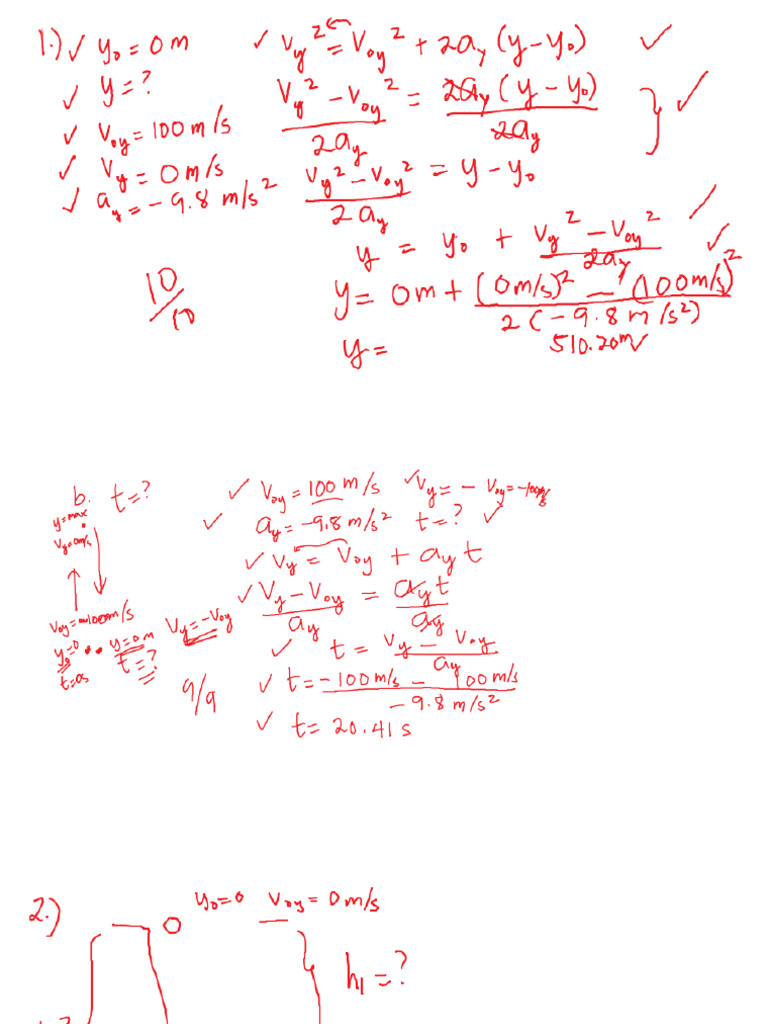 1.) ✓ y₀ = 0 m
✓ y = ?
✓ v₀y = 100 m/s
✓ Vy = 0 m/s
✓ ay = -9.8 m/s²
10/10
✓ Vy² = V₀y² + 2ay (y - y₀) ✓
(Vy² - V₀y²)/(2ay) = (2ay (y - y₀))/(2ay) } ✓
(Vy² - V₀y²)/(2ay) = y - y₀
y = y₀ + (Vy² - V₀y²)/(2ay) ✓
y = 0m + ((0 m/s)² - (100 m/s)²)/(2(-9.8 m/s²))
y = 510.20m ✓
b. t = ?
y = max
Vy = 0 m/s
y₀ = 0
t = 0s
y = 0 m
t = ?
Vy = -V₀y
9/9
✓ V₀y = 100 m/s ✓ Vy = - V₀y = -100m/s
✓ ay = -9.8 m/s² t = ? ✓
✓ Vy = V₀y + ay t
✓ (Vy - V₀y)/ay = (ay t)/ay
✓ t = (Vy - V₀y)/ay
✓ t = (-100 m/s - 100 m/s)/(-9.8 m/s²)
✓ t = 20.41 s
2.) y₀ = 0 V₀y = 0 m/s
h₁ = ?